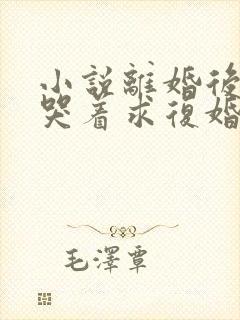 小說離婚後
哭着求復婚
毛澤覃